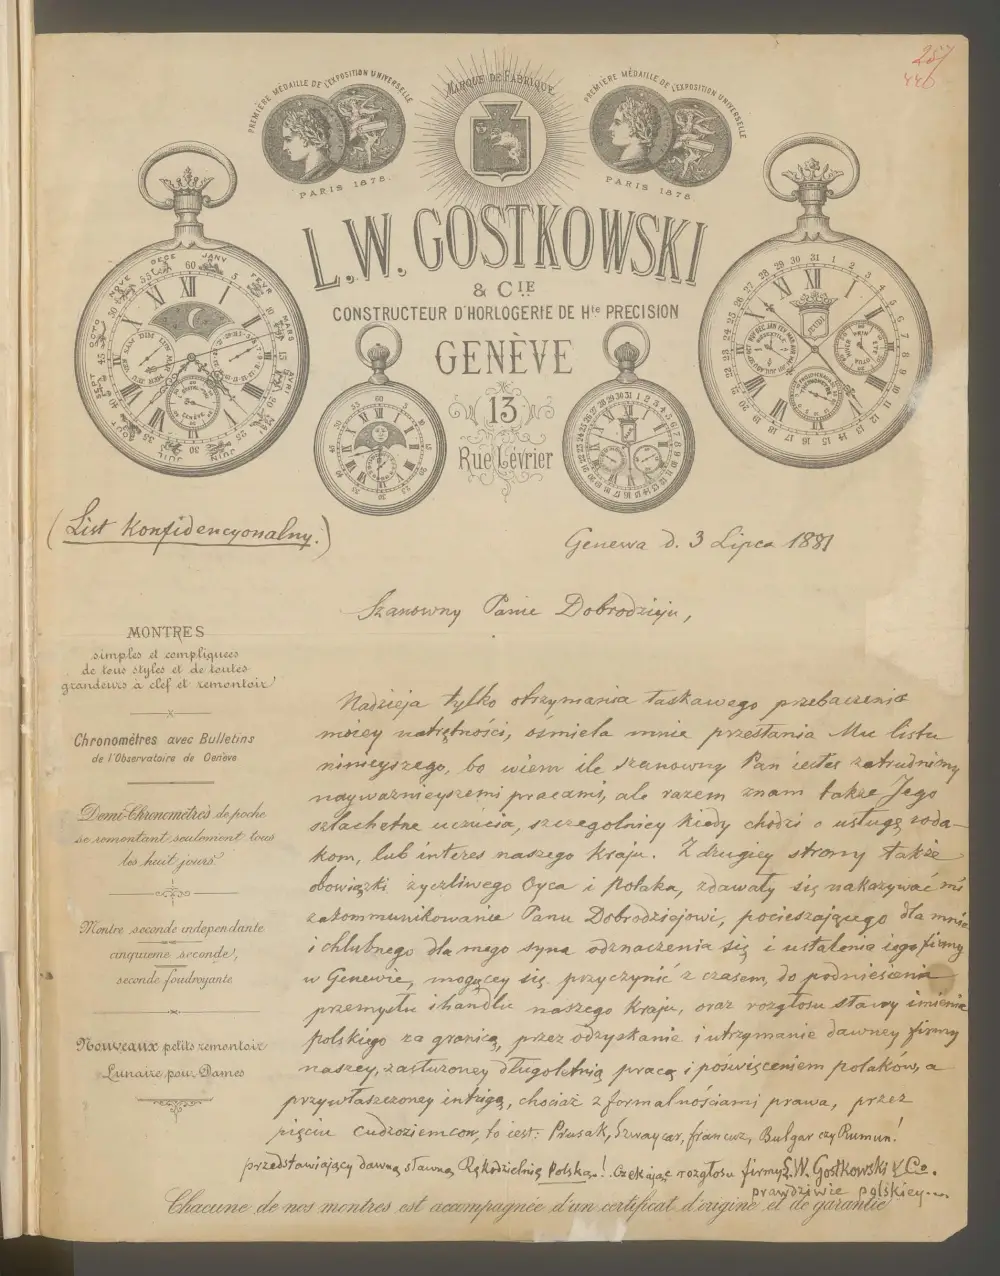 257
440
PREMIÈRE MÉDAILLE DE L'EXPOSITION UNIVERSELLE
PARIS 1878.
MARQUE DE FABRIQUE
PREMIÈRE MÉDAILLE DE L'EXPOSITION UNIVERSELLE
PARIS 1878
L.W. GOSTKOWSKI
& CIE
CONSTRUCTEUR D'HORLOGERIE DE Hte PRECISION
GENÈVE
13
Rue Lévrier
(List Konfidencyonalny.)
Genewa d. 3 Lipca 1881
Szanowny Panie Dobrodzieju,
MONTRES
simples et compliquées
de tous styles et de toutes
grandeurs à clef et remontoir
Chronomètres avec Bulletins
de l'Observatoire de Genève
Demi-Chronomètres de poche
se remontant seulement tous
les huit jours
Montre seconde indépendante
cinquième seconde,
seconde foudroyante
Nouveaux petits remontoir
Lunaire pour Dames
Nadzieja tylko otrzymania łaskawego przebaczenia
moiey natrętności, ośmiela mnie przesłania Mu listu
ninieyszego, bo wiem ile szanowny Pan iesteś zatrudniony
nayważnieyszemi pracami, ale razem znam także Jego
szlachetne uczucia, szczególniey kiedy chodzi o usługę roda-
kom, lub interes naszego Kraju. Z drugiey strony także
obowiązki życzliwego Oyca i Polaka, zdawały się nakazywać mi
zakommunikowanie Panu Dobrodziejowi, pocieszającego dla mnie
i chlubnego dla mego syna odznaczenia się i ustalenia iego firmy
w Genewie, mogącey się przyczynić z czasem, do podniesienia
przemysłu i handlu naszego Kraju, oraz rozgłosu sławy imienia
polskiego za granicą, przez odzyskanie i utrzymanie dawney firmy
naszey, zasłużoney długoletnią pracą i poświęceniem polaków, a
przywłaszczoney intrygą, chociaż z formalnościami prawa, przez
pięciu cudzoziemców, to iest: Prusak, Szwaycar, francuz, Bulgar czy Rumun!
przedstawiający dawną sławną Rękodzielnię Polską! Czekając rozgłosu firmy L.W. Gostkowski & Co.
prawdziwie polskiey...
Chacune de nos montres est accompagnée d'un certificat d'origine et de garantie